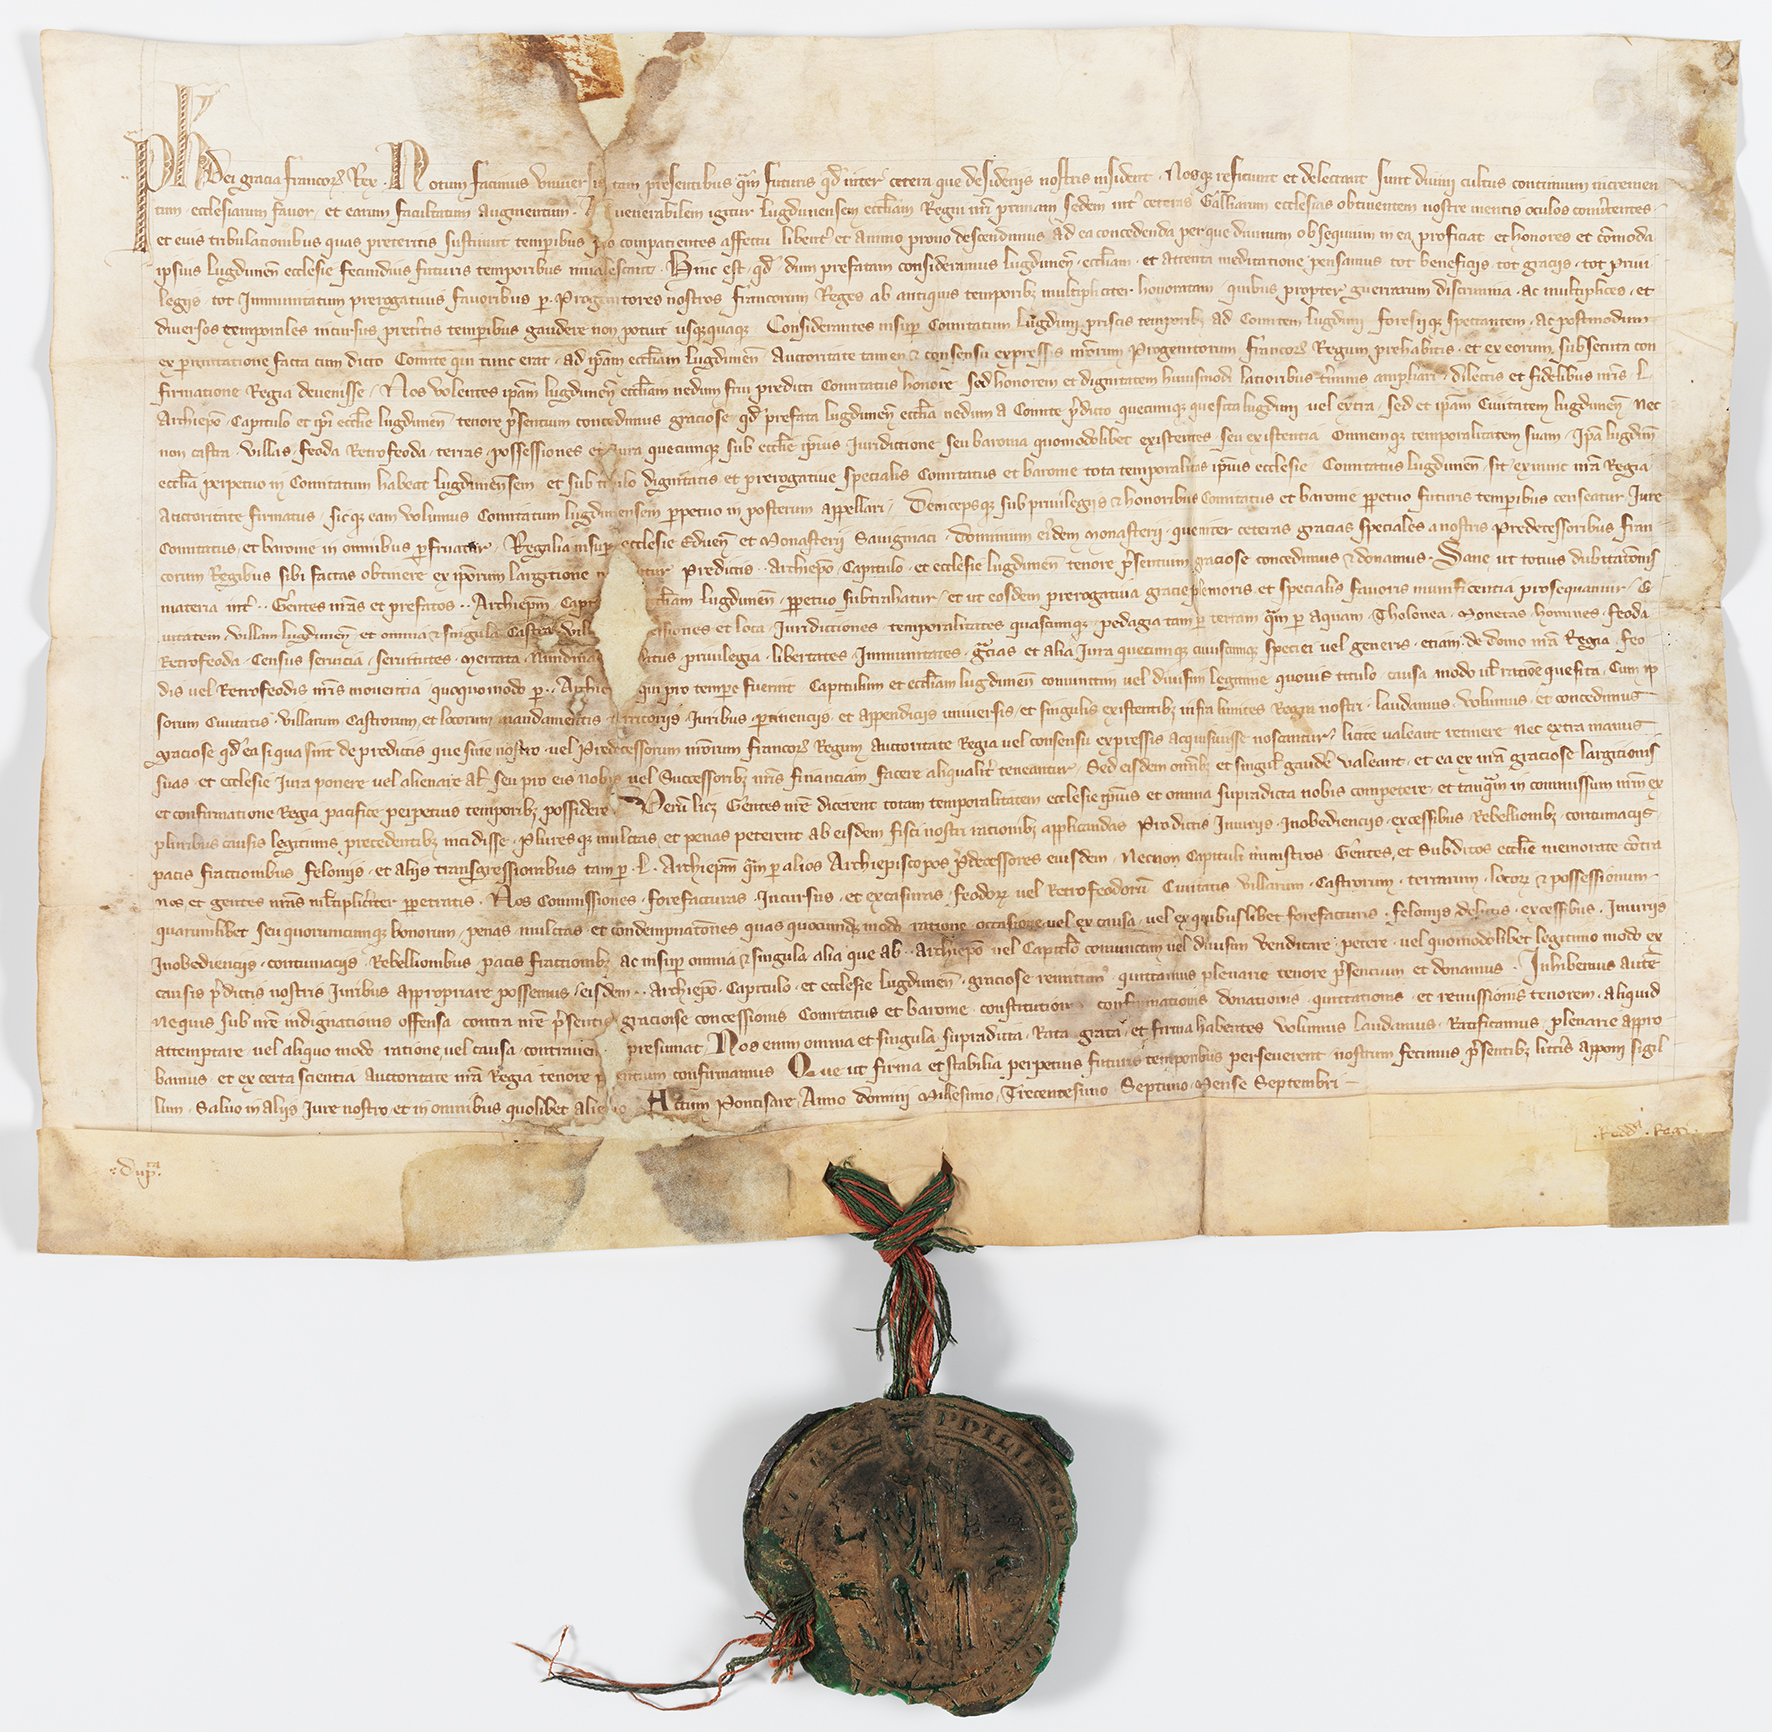 Ph Dei gracia francoꝝ Rex . Notum facimus Universis tam presentibus qᵃm futuris qđ inter cetera que desiderijs nostris insident . Nosqꝫ reficiunt et delectant sunt divini cultus continuum incremen
tum . ecclesiarum favor , et earum facultatum Augmentum . venerabilem igitur lugdunensem eccl̄iam Regni nr̄i primam sedem int' ceteras Galliarum ecclesias obtinentem nostre mentis oculos
et eius tribulationibus quas preteritis sustinuit temp̱ibus pio compatientes affectu libent' et animo prono descendimus ad ea concedenda per que divinum obsequium in ea proficiat et honores et cōmoda
ipsius lugdunen̄ ecclesie fecundius futuris temporibus invalescant . Hinc est . qđ dum prefatam consideramus lugdunen̄ . eccl̄iam . et attenta meditatione pensamus tot beneficijs tot gracijs . tot privi
legijs tot Immunitatum prerogativis favoribus p̱ . Progenitores nostros francorum Reges ab antiquis temporibꝫ multipliciter honoratam quibus propter guerrarum discrimina . ac multiplices . et
diversos temporales incursus pret'itis temp̱ibus gaudere non potuit usqꝫquaqꝫ Considerantes insup̱ Comitatum lugduni priscis temporibꝫ ad Comitem lugduni foresijqꝫ spectantem . ac postmodum
ex p̱mutatione facta cum dicto Comite qui tunc erat . ad ip̄am eccl̄iam lugdunen̄ Auctoritate tamen ⁊ consensu expressis nr̄orum Progenitorum francoꝝ Regum prehabitis . et ex eorum subsecuta con
firmatione Regia devenisse / Nos volentes ip̄am lugdunen̄ eccl̄iam nedum frui predicti Comitatus honore sed honorem et dignitatem huiusmodi latioribus t'minis ampliari . dilectis et fidelibus nr̄is . L .
Archiep̄o . Capitulo et ip̄i eccl̄ie lugdunen̄ tenore p̄sentium concedimus graciose qđ prefata lugdunen̄ eccl̄ia nedum a Comite p̄dicto quecumqꝫ quesita lugduni vel extra . sed et ip̄am Civitatem lugdunen̄ nec
non castra . villas . feoda Retrofeoda . terras . possessiones et Iura quecumqꝫ sub eccl̄ie ip̄ius Iuridictione seu baronia quomodolibet existentes seu existentia Omnemqꝫ temporalitatem suam . Ip̄a lugdun̄
eccl̄ia perpetuo in Comitatum habeat lugdunensem et sub titulo dignitatis et prerogative specialis Comitatus et baronie tota temporalitas ip̄ius ecclesie Comitatus lugdunen̄ sit ex nunc nr̄a Regia
Auctoritate firmatus . sicqꝫ eam volumus Comitatum lugdunensem p̱petuo in posterum appellari / Deincepsqꝫ sub privilegijs ⁊ honoribus Comitatus et baronie p̱petuo futuris temp̱ibus censeatur . Iure
Comitatus , et baronie in omnibus p̱fruatur . Regalia insup̱ ecclesie Eduen̄ et Monasterii Savigniaci . dominium eiꝰdem monasterij . que inter ceteras gracias speciales a nostris Predecessoribus fran
corum Regibus sibi factas obtinere ex ip̄orum largitione Predictis .. Archiep̄o Capitulo . et ecclesie lugdunen̄ tenore p̄sentium graciose concedimus ⁊ donamus . Sane ut totius dubitationis
materia int' .. Gentes nr̄as et prefatos .. Archiep̄m eccl̄iam lugdunen̄ . p̱petuo subtrahatur / et ut eosdem prerogativa gracie et specialis favoris munificentia prosequamur /
vitatem . villam lugdunen̄ et omnia ⁊ singula Castra vill et loca . Iuridictiones . temporalitates quascumqꝫ . pedagia tam p̱ terram qᵃm p̱ aquam . Tholonea . Monetas . homines . feoda
Retrofeoda . Census servicia . servitutes . mercata . nundinas privilegia . libertates . Immunitates . gr̄cias et alia Iura quecumqꝫ cuiuscumqꝫ speciei vel generis . etiam . de domo nr̄a Regia . feo
dis vel Retrofeodis nr̄is moventia quoquomodo p̱ .. qui pro temp̱e fuerint Capitulum et eccl̄iam lugdunen̄ coniunctim vel divisim legitime quovis titulo causa modo vel ratione quesita . Cum ip
sorum Civitatis . villarum . Castrorum , et locorum mandamentis . territorijs . Iuribus . p̱tinencijs . et appendicijs universis . et singulis existentibꝫ infra limites Regni nostri . laudamus . volumus . et concedimus
graciose qđ ea si qua sint de predictis que sine nostro . vel Predecessorum nr̄orum francoꝝ Regum Auctoritate Regia vel consensu expressis acquisivisse noscantur . licite valeant retinere nec extra manus
suas . et ecclesie Iura ponere vel alienare al̄ . seu pro eis nobis vel Successoribꝫ nr̄is financiam facere aliqualit' teneantur . Sed eisdem om̄ibꝫ et singul̄ gaudē valeant . et ea ex nr̄a graciose largitionis
et confirmatione Regia pacifice perpetuis temporibꝫ possidere . Verū licꝫ Gentes nr̄e dicerent totam temporalitatem ecclesie ip̄ius et omnia supradicta nobis competere . et tanqᵃm in commissum nr̄m ex
pluribus causis legitimis precedentibꝫ incidisse . Pluresqꝫ mulctas et penas peterent ab eisdem fisci nostri rationibꝫ applicandas Predictis Iniurijs . Inobediencijs . excessibus . Rebellionibꝫ . contumacijs
pacis fractionibus felonijs . et alijs transgressionibus tam p̱ . L . Archiep̄m qᵃm p̱ alios Archiepiscopos p̄decessores eiusdem . Necnon Capituli ministros . Gentes . et Subditos eccl̄ie memorate cōtra
nos et gentes nr̄as mlt̄ipliciter p̱petratis . Nos Commissiones . forefacturas . Incursus . et excasuras . feodoꝝ vel Retrofeodorum Civitatis villarum . Castrorum . terrarum . locoꝝ ⁊ possessionum
quarumlibet seu quorumcumqꝫ bonorum . penas mulctas et condempnatōnes quas quocumqꝫ modo ratione occasione vel ex causa . vel ex quibuslibet forefacturis . felonijs delictis . excessibus . Iniurijs
Inobediencijs . contumacijs . Rebellionibus pacis fractionibꝫ ac insup̱ omnia ⁊ singula alia que ab .. Archiep̄o vel Capitulo coniunctim vel divisim vendicare . petere . vel quomodolibet legitimo modo ex
causis p̄dictis nostris Iuribus appropriare possemus / eisdem .. Archiep̄o . Capitulo . et ecclesie lugdunen̄ . graciose remittimꝰ . quittamus plenarie tenore p̄sentium et donamus . Inhibemus autē
ne quis sub nr̄e indignationis offensa contra nr̄e p̄sentis graciose concessionis Comitatus et baronie . constitutionis confirmationis donationis . quittationis . et remissionis tenorem . aliquid
attemptare . vel aliquo modo . ratione vel causa . contravenire presumat . Nos enim omnia et singula supradicta . Rata grata . et firma habentes volumus laudamus . Ratificamus . plenarie appro
bamus . et ex certa scientia Auctoritate nr̄a Regia tenore p̄sentium confirmamus Que ut firma et stabilia perpetuis futuris temporibus perseverent nostrum fecimus p̄sentibꝫ litt'is apponi sigil
lum . Salvo in alijs Iure nostro . et in omnibus quolibet alieno . Actum Pontisare . Anno domini Millesimo . Trecentesimo Septimo . Mense Septembri
Dupᵃ.
Reddᵃ . Regi .
PHILIPPUS